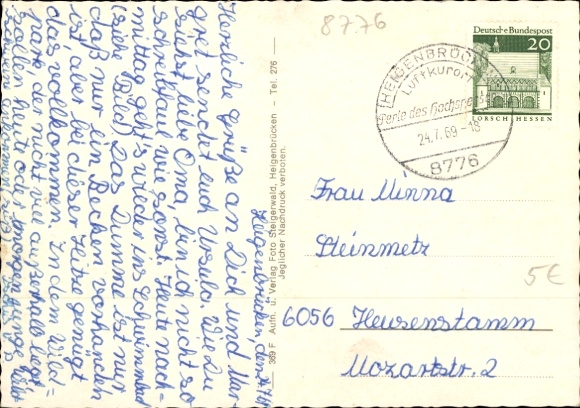 87.76
Heigenbrücken, den 24.7.69
Herzliche Grüße an Dich und Mar-
gret sendet euch Ursula. Wie Du
siehst liebe Oma, bin ich nicht so
schreibfaul wie sonst. Heute nach-
mittag geht's wieder ins Schwimmbad
(siehe Bild) Das Dumme ist nur
daß nur ein Becken vorhanden
ist, aber bei dieser Hitze genügt
das vollkommen. In dem Wild-
park, der nicht weit außerhalb liegt
wollen heut oder morgen
369 F Aufn. u. Verlag Foto Steigerwald, Heigenbrücken - Tel. 276
Jeglicher Nachdruck verboten.
HEIGENBRÜCKEN
Luftkurort
Perle des Hochspessarts
24.7.69-18
8776
Deutsche Bundespost
20
LORSCH HESSEN
Frau Minna
Steinmetz
5€
6056 Heusenstamm
Mozartstr. 2